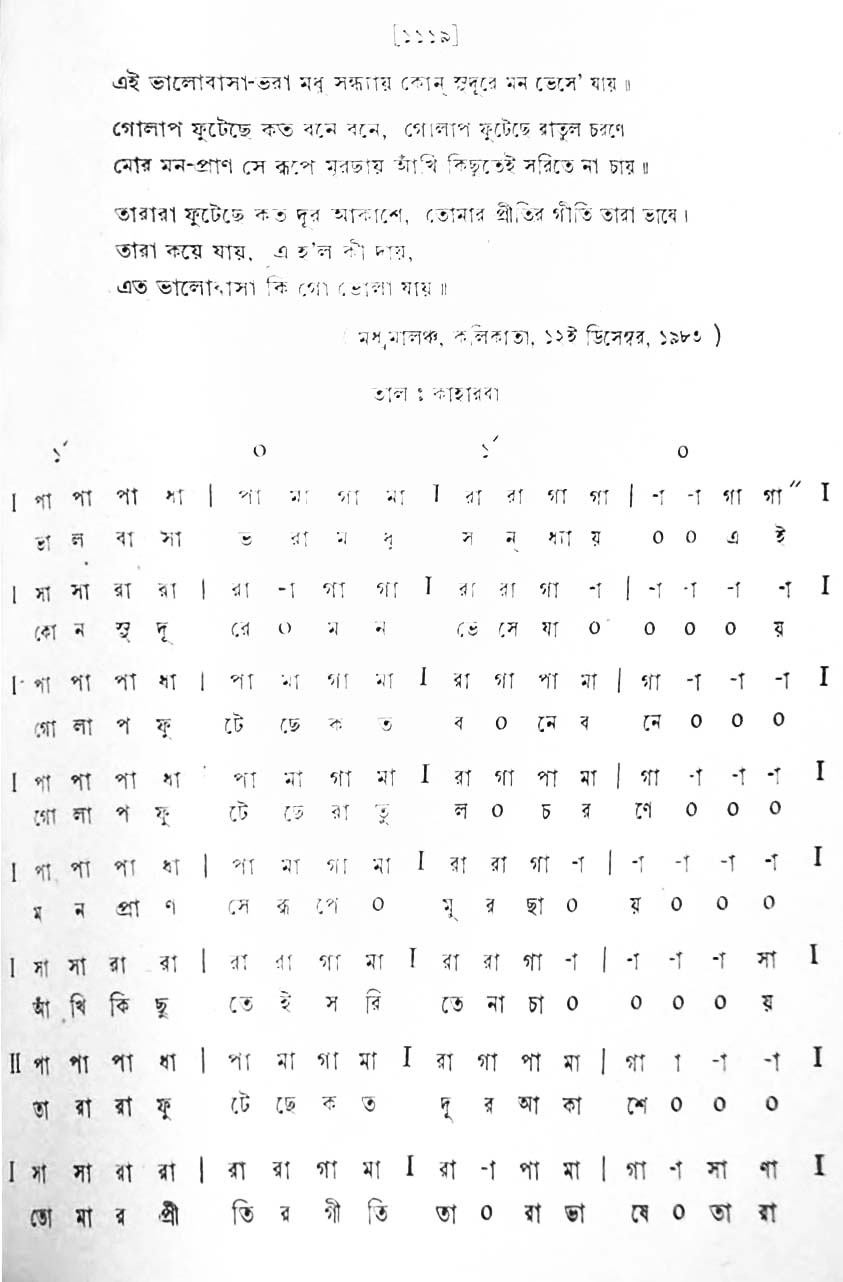 [১১১৯]
এই ভালোবাসা-ভরা মধু সন্ধ্যায় কোন্ সুদূরে মন ভেসে' যায় ॥
গোলাপ ফুটেছে কত বনে বনে, গোলাপ ফুটেছে রাতুল চরণে
মোর মন-প্রাণ সে রূপে মূরছায় আঁখি কিছুতেই সরিতে না চায় ॥
তারারা ফুটেছে কত দূর আকাশে, তোমার প্রীতির গীতি তারা ভাষে।
তারা কয়ে যায়, এ হ'ল কী দায়,
এত ভালোবাসা কি গো ভোলা যায় ॥
( মধুমালঞ্চ, কলিকাতা, ১২ই ডিসেম্বর, ১৯৮৩ )
তাল : কাহারবা
১´ ০ ১´ ০
I পা পা পা ধা | পা মা গা মা I রা রা গা গা | -া -া গা গা" I
ভা ল বা সা ভ রা ম ধু স ন্ ধ্যা য় ০ ০ এ ই
I সা সা রা রা | রা -া গা গা I রা রা গা -া | -া -া -া -া I
কো ন সু দূ রে ০ ম ন ভে সে যা ০ ০ ০ ০ য়
I পা পা পা ধা | পা মা গা মা I রা গা পা মা | গা -া -া -া I
গো লা প ফু টে ছে ক ত ব ০ নে ব নে ০ ০ ০
I পা পা পা ধা পা মা গা মা I রা গা পা মা | গা -া -া -া I
গো লা প ফু টে ছে রা তু ল ০ চ র ণে ০ ০ ০
I পা পা পা ধা | পা মা গা মা I রা রা গা -া | -া -া -া -া I
ম ন প্রা ণ সে রূ পে ০ মূ র ছা ০ য় ০ ০ ০
I সা সা রা রা | রা রা গা মা I রা রা গা -া | -া -া -া সা I
আঁ খি কি ছু তে ই স রি তে না চা ০ ০ ০ ০ য়
II পা পা পা ধা | পা মা গা মা I রা গা পা মা | গা া -া -া I
তা রা রা ফু টে ছে ক ত দূ র আ কা শে ০ ০ ০
I সা সা রা রা | রা রা গা মা I রা -া পা মা | গা -া সা ণা I
তো মা র প্রী তি র গী তি তা ০ রা ভা ষে ০ তা রা